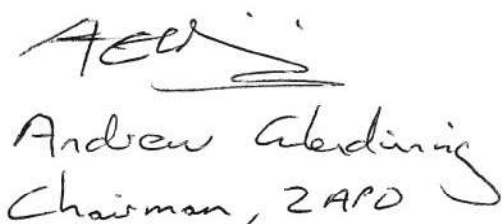 Andrew Glendining
Chairman, ZAPD